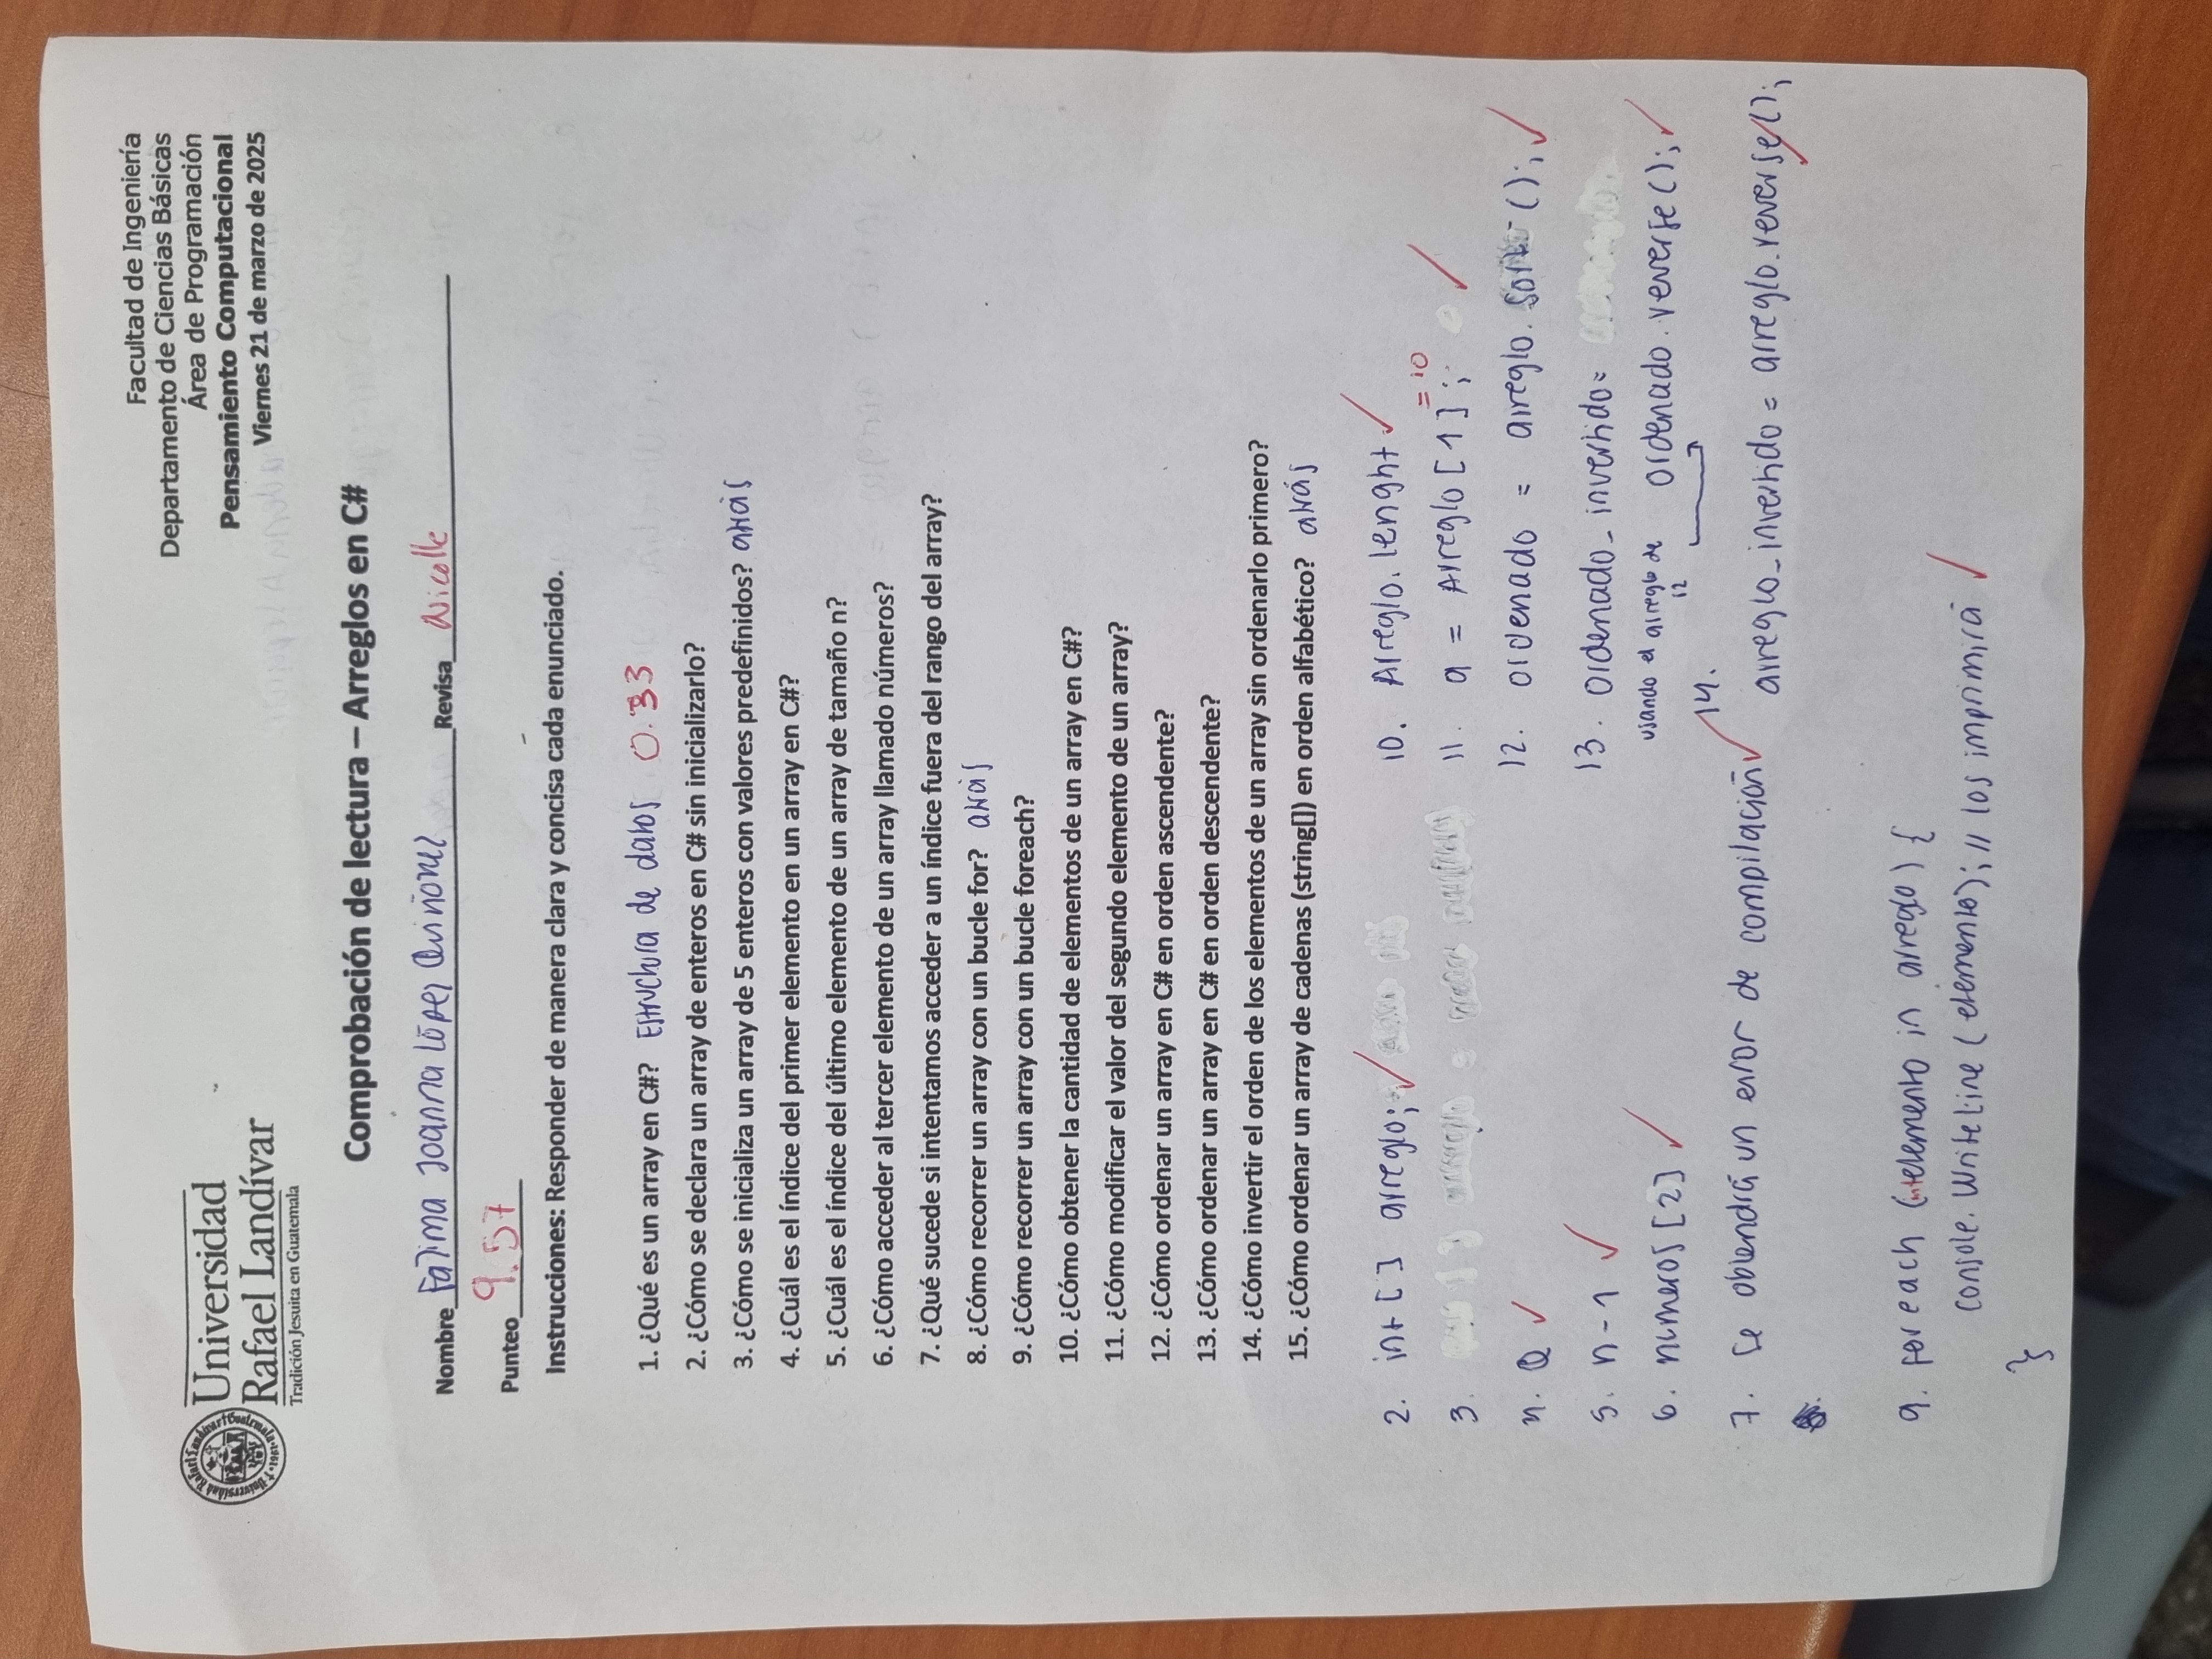 Universidad
Rafael Landívar
Tradición Jesuita en Guatemala
Facultad de Ingeniería
Departamento de Ciencias Básicas
Área de Programación
Pensamiento Computacional
Viernes 21 de marzo de 2025
Comprobación de lectura – Arreglos en C#
Nombre Fatima Joanna López Quiñonez Revisa Nicolle
Punteo 9.57
Instrucciones: Responder de manera clara y concisa cada enunciado.
1. ¿Qué es un array en C#? Estructura de datos 0.33
2. ¿Cómo se declara un array de enteros en C# sin inicializarlo?
3. ¿Cómo se inicializa un array de 5 enteros con valores predefinidos? atrás
4. ¿Cuál es el índice del primer elemento en un array en C#?
5. ¿Cuál es el índice del último elemento de un array de tamaño n?
6. ¿Cómo acceder al tercer elemento de un array llamado números?
7. ¿Qué sucede si intentamos acceder a un índice fuera del rango del array?
8. ¿Cómo recorrer un array con un bucle for? atrás
9. ¿Cómo recorrer un array con un bucle foreach?
10. ¿Cómo obtener la cantidad de elementos de un array en C#?
11. ¿Cómo modificar el valor del segundo elemento de un array?
12. ¿Cómo ordenar un array en C# en orden ascendente?
13. ¿Cómo ordenar un array en C# en orden descendente?
14. ¿Cómo invertir el orden de los elementos de un array sin ordenarlo primero?
15. ¿Cómo ordenar un array de cadenas (string[]) en orden alfabético? atrás
2. int [ ] arreglo; ✓
3.
4. 0 ✓
5. n-1 ✓
6. numeros [2] ✓
7. se obtendrá un error de compilación ✓
9. foreach (int elemento in arreglo) {
console.WriteLine (elemento); // los imprimirá ✓
}
10. Arreglo.lenght ✓
11. a = Arreglo [1] = 10 ; ✓
12. ordenado = arreglo.sort (); ✓
13. ordenado_invertido=
usando el arreglo de 12 ordenado.reverse(); ✓
14.
arreglo_invertido = arreglo.reverse(); ✓